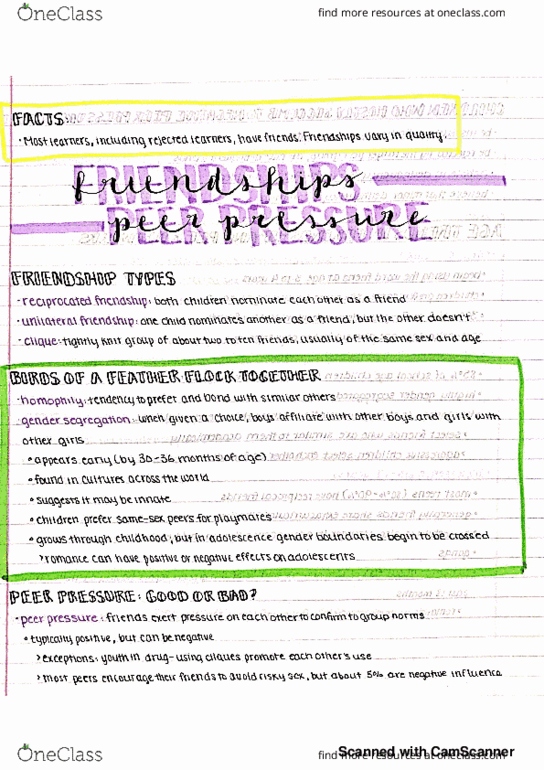 OneClass
find more resources at oneclass.com
FACTS
· Most learners, including rejected learners, have friends. Friendships vary in quality.
friendships
peer pressure
PEER PRESSURE
FRIENDSHIP TYPES
· reciprocated friendship: both children nominate each other as a friend
· unilateral friendship: one child nominates another as a friend, but the other doesn't
· clique: tightly knit group of about two to ten friends, usually of the same sex and age
BIRDS OF A FEATHER FLOCK TOGETHER
· homophily: tendency to prefer and bond with similar others
· gender segregation: when given a choice, boys affiliate with other boys and girls with
other girls
• appears early (by 30-36 months of age)
• found in cultures across the world
• suggests it may be innate
• children prefer same-sex peers for playmates
• grows through childhood, but in adolescence gender boundaries begin to be crossed
> romance can have positive or negative effects on adolescents
PEER PRESSURE: GOOD OR BAD?
· peer pressure: friends exert pressure on each other to confirm to group norms
• typically positive, but can be negative
> exceptions: youth in drug-using cliques promote each other's use
> most peers encourage their friends to avoid risky sex, but about 5% are negative influence
OneClass
find more resources at oneclass.com
Scanned with CamScanner